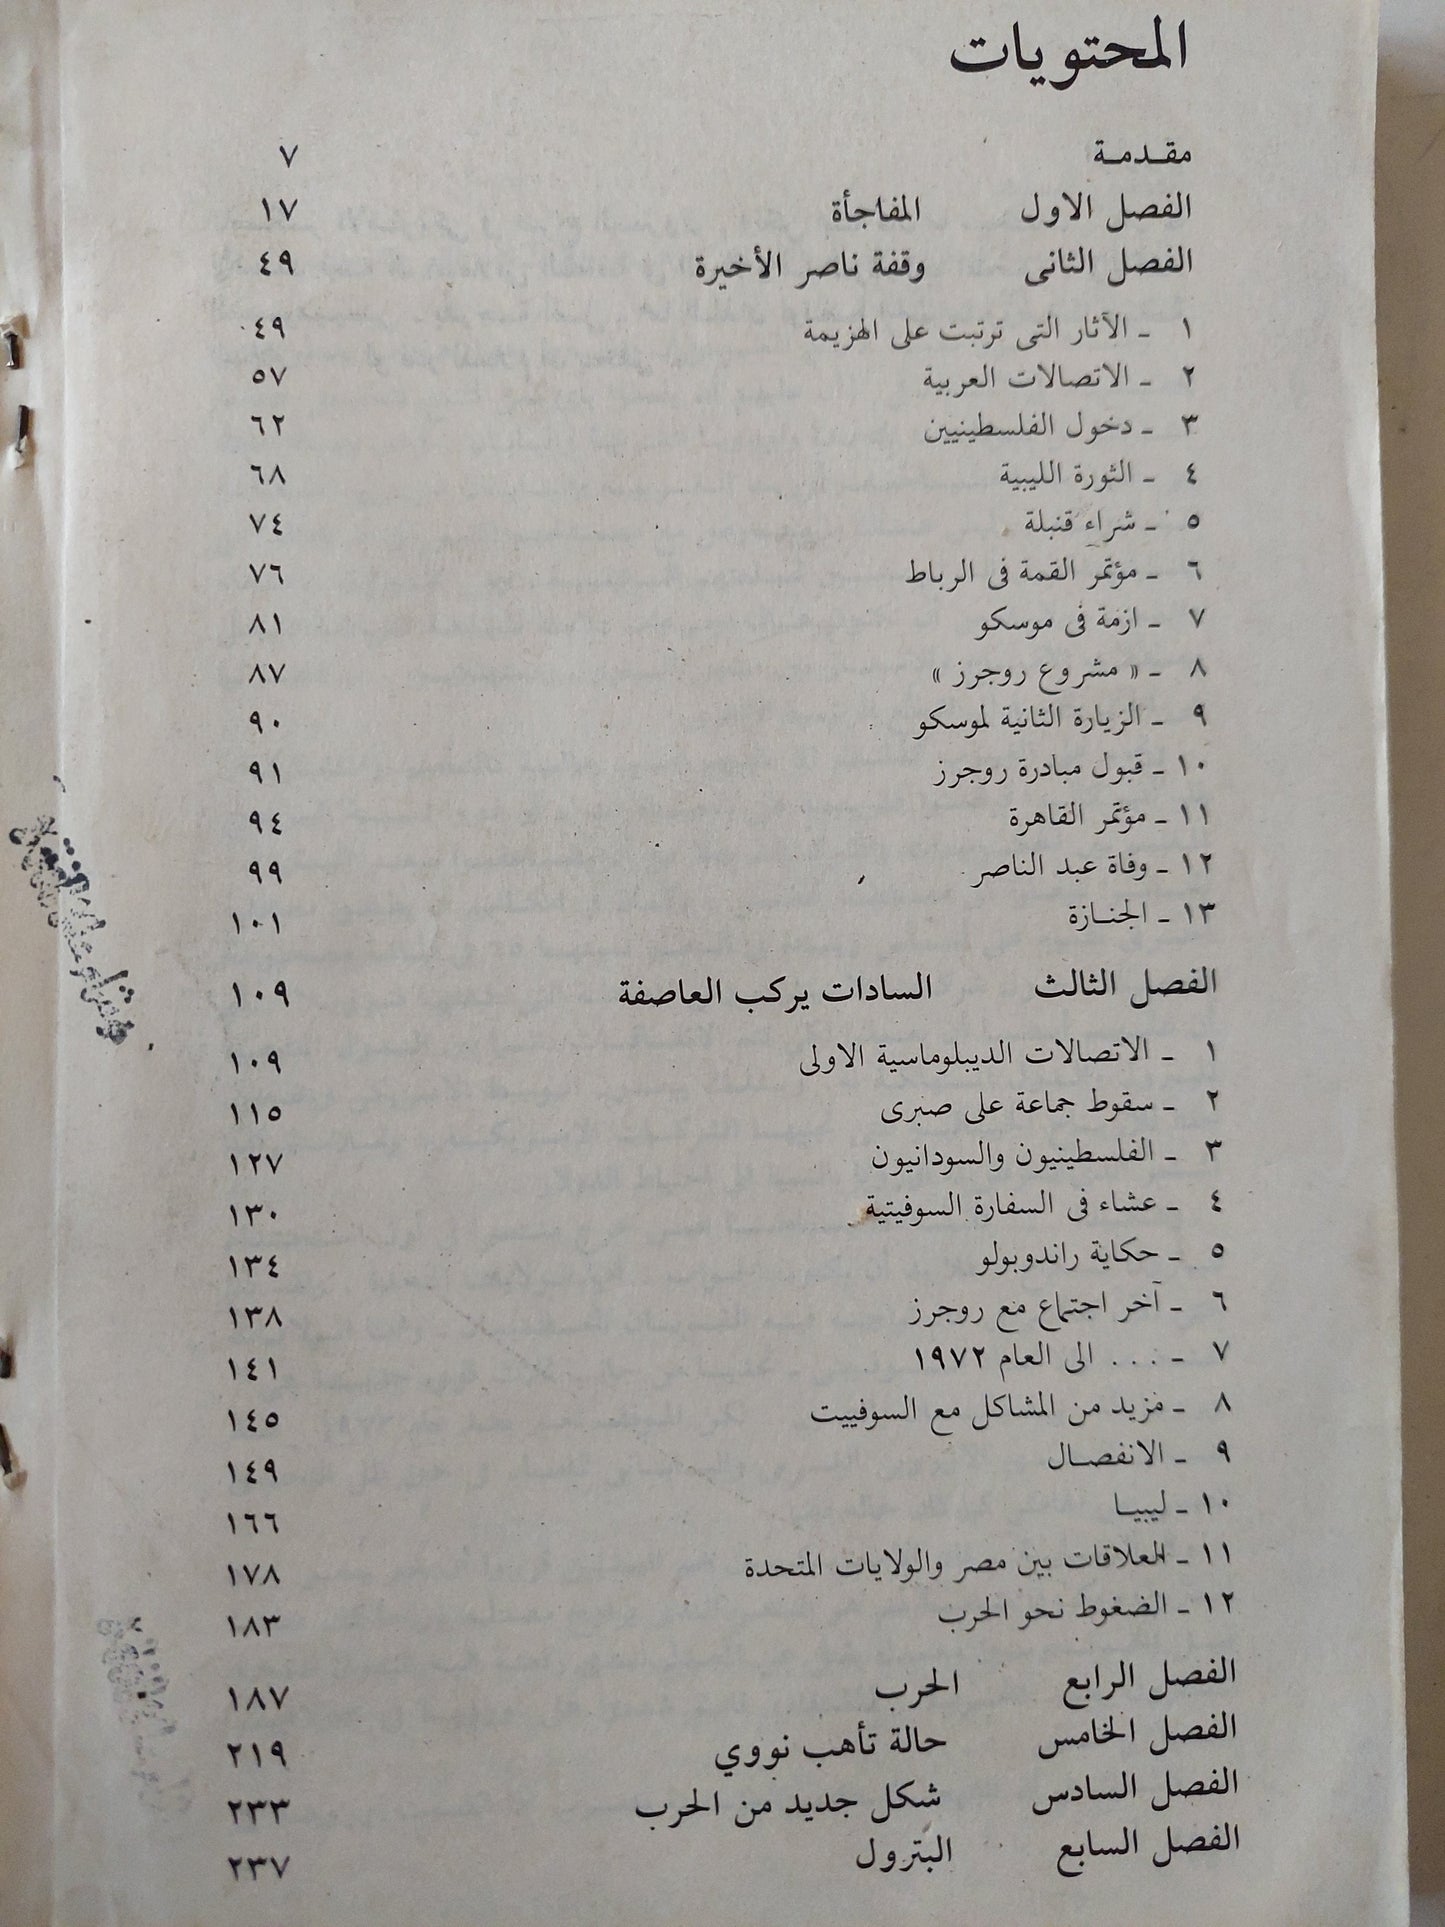 المحتويات
مقـدمـة ٧
الفصل الاول المفاجأة ١٧
الفصل الثانى وقفة ناصر الأخيرة ٤٩
١ ـ الآثار التى ترتبت على الهزيمة ٤٩
٢ ـ الاتصالات العربية ٥٧
٣ ـ دخول الفلسطينيين ٦٢
٤ ـ الثورة الليبية ٦٨
٥ ـ شراء قنبلة ٧٤
٦ ـ مؤتمر القمة فى الرباط ٧٦
٧ ـ ازمة فى موسكو ٨١
٨ ـ « مشروع روجرز » ٨٧
٩ ـ الزيارة الثانية لموسكو ٩٠
١٠ ـ قبول مبادرة روجرز ٩١
١١ ـ مؤتمر القاهرة ٩٤
١٢ ـ وفاة عبد الناصر ٩٩
١٣ ـ الجنـازة ١٠١
الفصل الثالث السادات يركب العاصفة ١٠٩
١ ـ الاتصالات الديبلوماسية الاولى ١٠٩
٢ ـ سقوط جماعة على صبرى ١١٥
٣ ـ الفلسطينيون والسودانيون ١٢٧
٤ ـ عشاء فى السفارة السوفيتية ١٣٠
٥ ـ حكاية راندوبولو ١٣٤
٦ ـ آخر اجتماع مع روجرز ١٣٨
٧ ـ . . . الى العام ١٩٧٢ ١٤١
٨ ـ مزيد من المشاكل مع السوفييت ١٤٥
٩ ـ الانفصـال ١٤٩
١٠ ـ ليبيـا ١٦٦
١١ ـ العلاقات بين مصر والولايات المتحدة ١٧٨
١٢ ـ الضغوط نحو الحرب ١٨٣
الفصل الرابع الحرب ١٨٧
الفصل الخامس حالة تأهب نووي ٢١٩
الفصل السادس شكل جديد من الحرب ٢٣٣
الفصل السابع البترول ٢٣٧